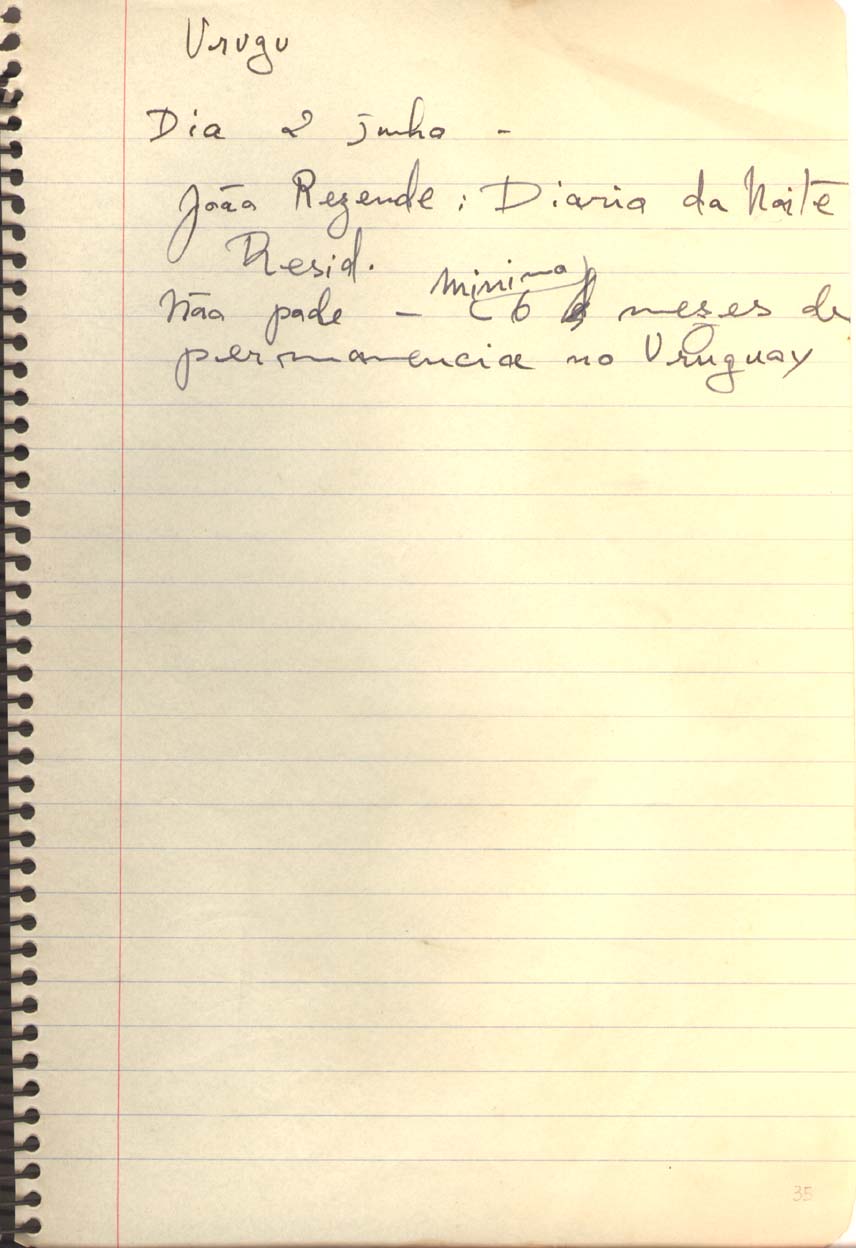 Urugu
Dia 2 junho -
João Rezende : Diario da Noite
Resid.
minimo
Não pode - ( 6 meses de
permanencia no Uruguay
35